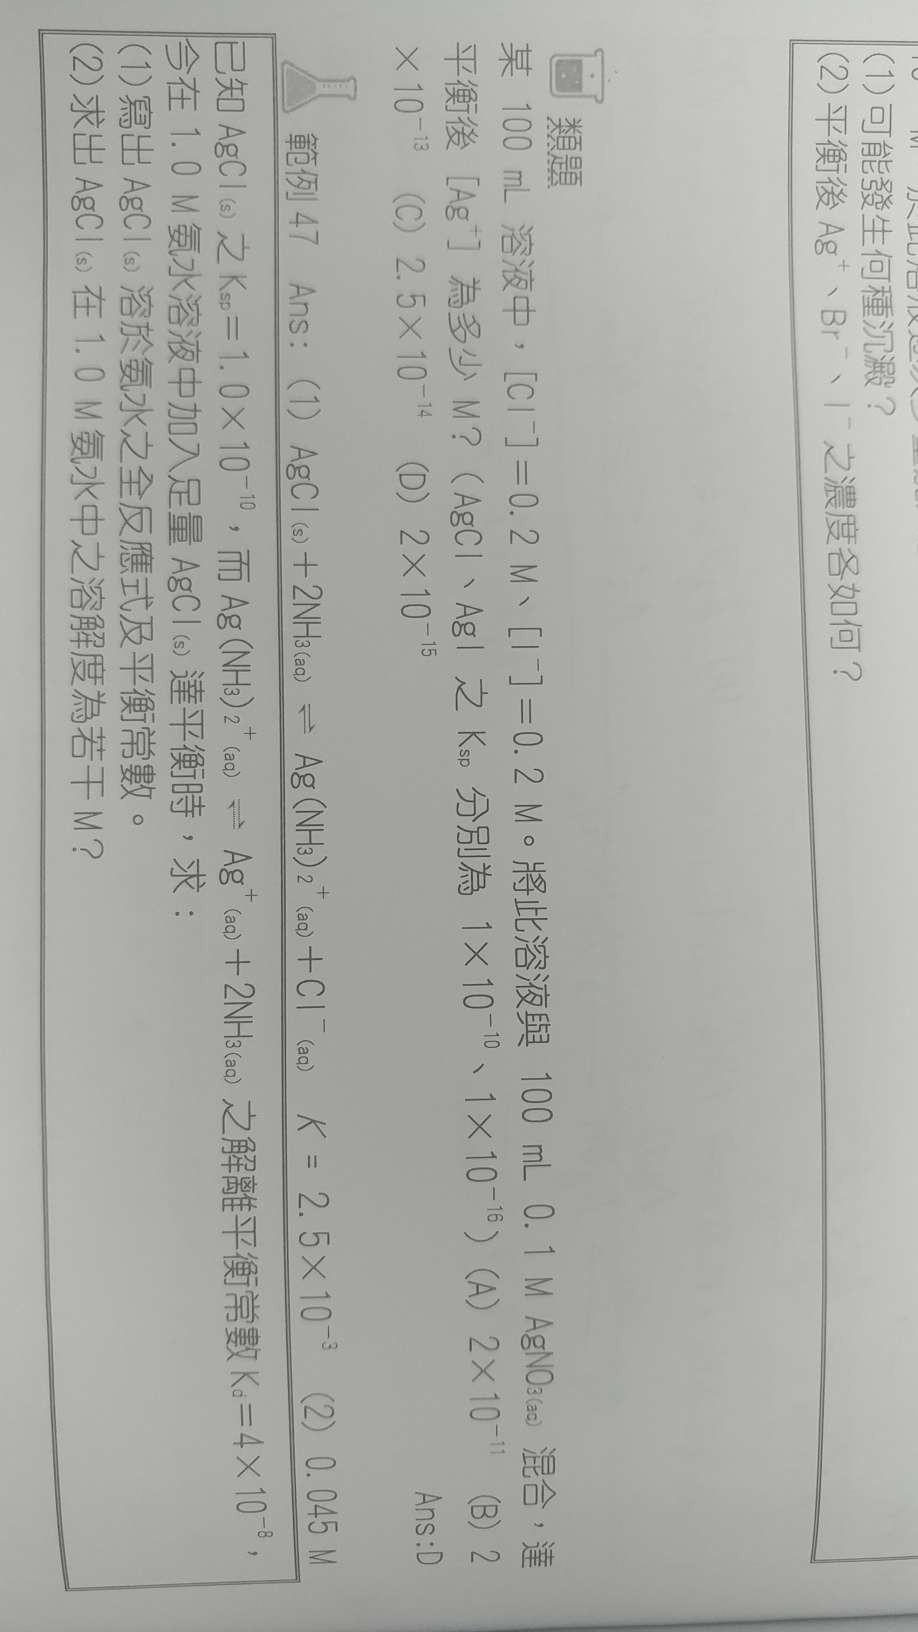 (1)可能發生何種沉澱？
(2)平衡後 Ag⁺、Br⁻、I⁻之濃度各如何？
類題
某 100 mL 溶液中，[Cl⁻]＝0.2 M、[I⁻]＝0.2 M。將此溶液與 100 mL 0.1 M AgNO₃(aq) 混合，達
平衡後 [Ag⁺] 為多少 M？(AgCl、AgI 之 Ksp 分別為 1×10⁻¹⁰、1×10⁻¹⁶) (A) 2×10⁻¹¹ (B) 2
×10⁻¹³ (C) 2.5×10⁻¹⁴ (D) 2×10⁻¹⁵
Ans:D
範例 47 Ans: (1) AgCl(s)＋2NH₃(aq) ⇌ Ag(NH₃)₂⁺(aq)＋Cl⁻(aq) K = 2.5×10⁻³ (2) 0.045 M
已知 AgCl(s) 之 Ksp＝1.0×10⁻¹⁰，而 Ag(NH₃)₂⁺(aq) ⇌ Ag⁺(aq)＋2NH₃(aq) 之解離平衡常數 Kd＝4×10⁻⁸，
今在 1.0 M 氨水溶液中加入足量 AgCl(s) 達平衡時，求：
(1)寫出 AgCl(s) 溶於氨水之全反應式及平衡常數。
(2)求出 AgCl(s) 在 1.0 M 氨水中之溶解度為若干 M？